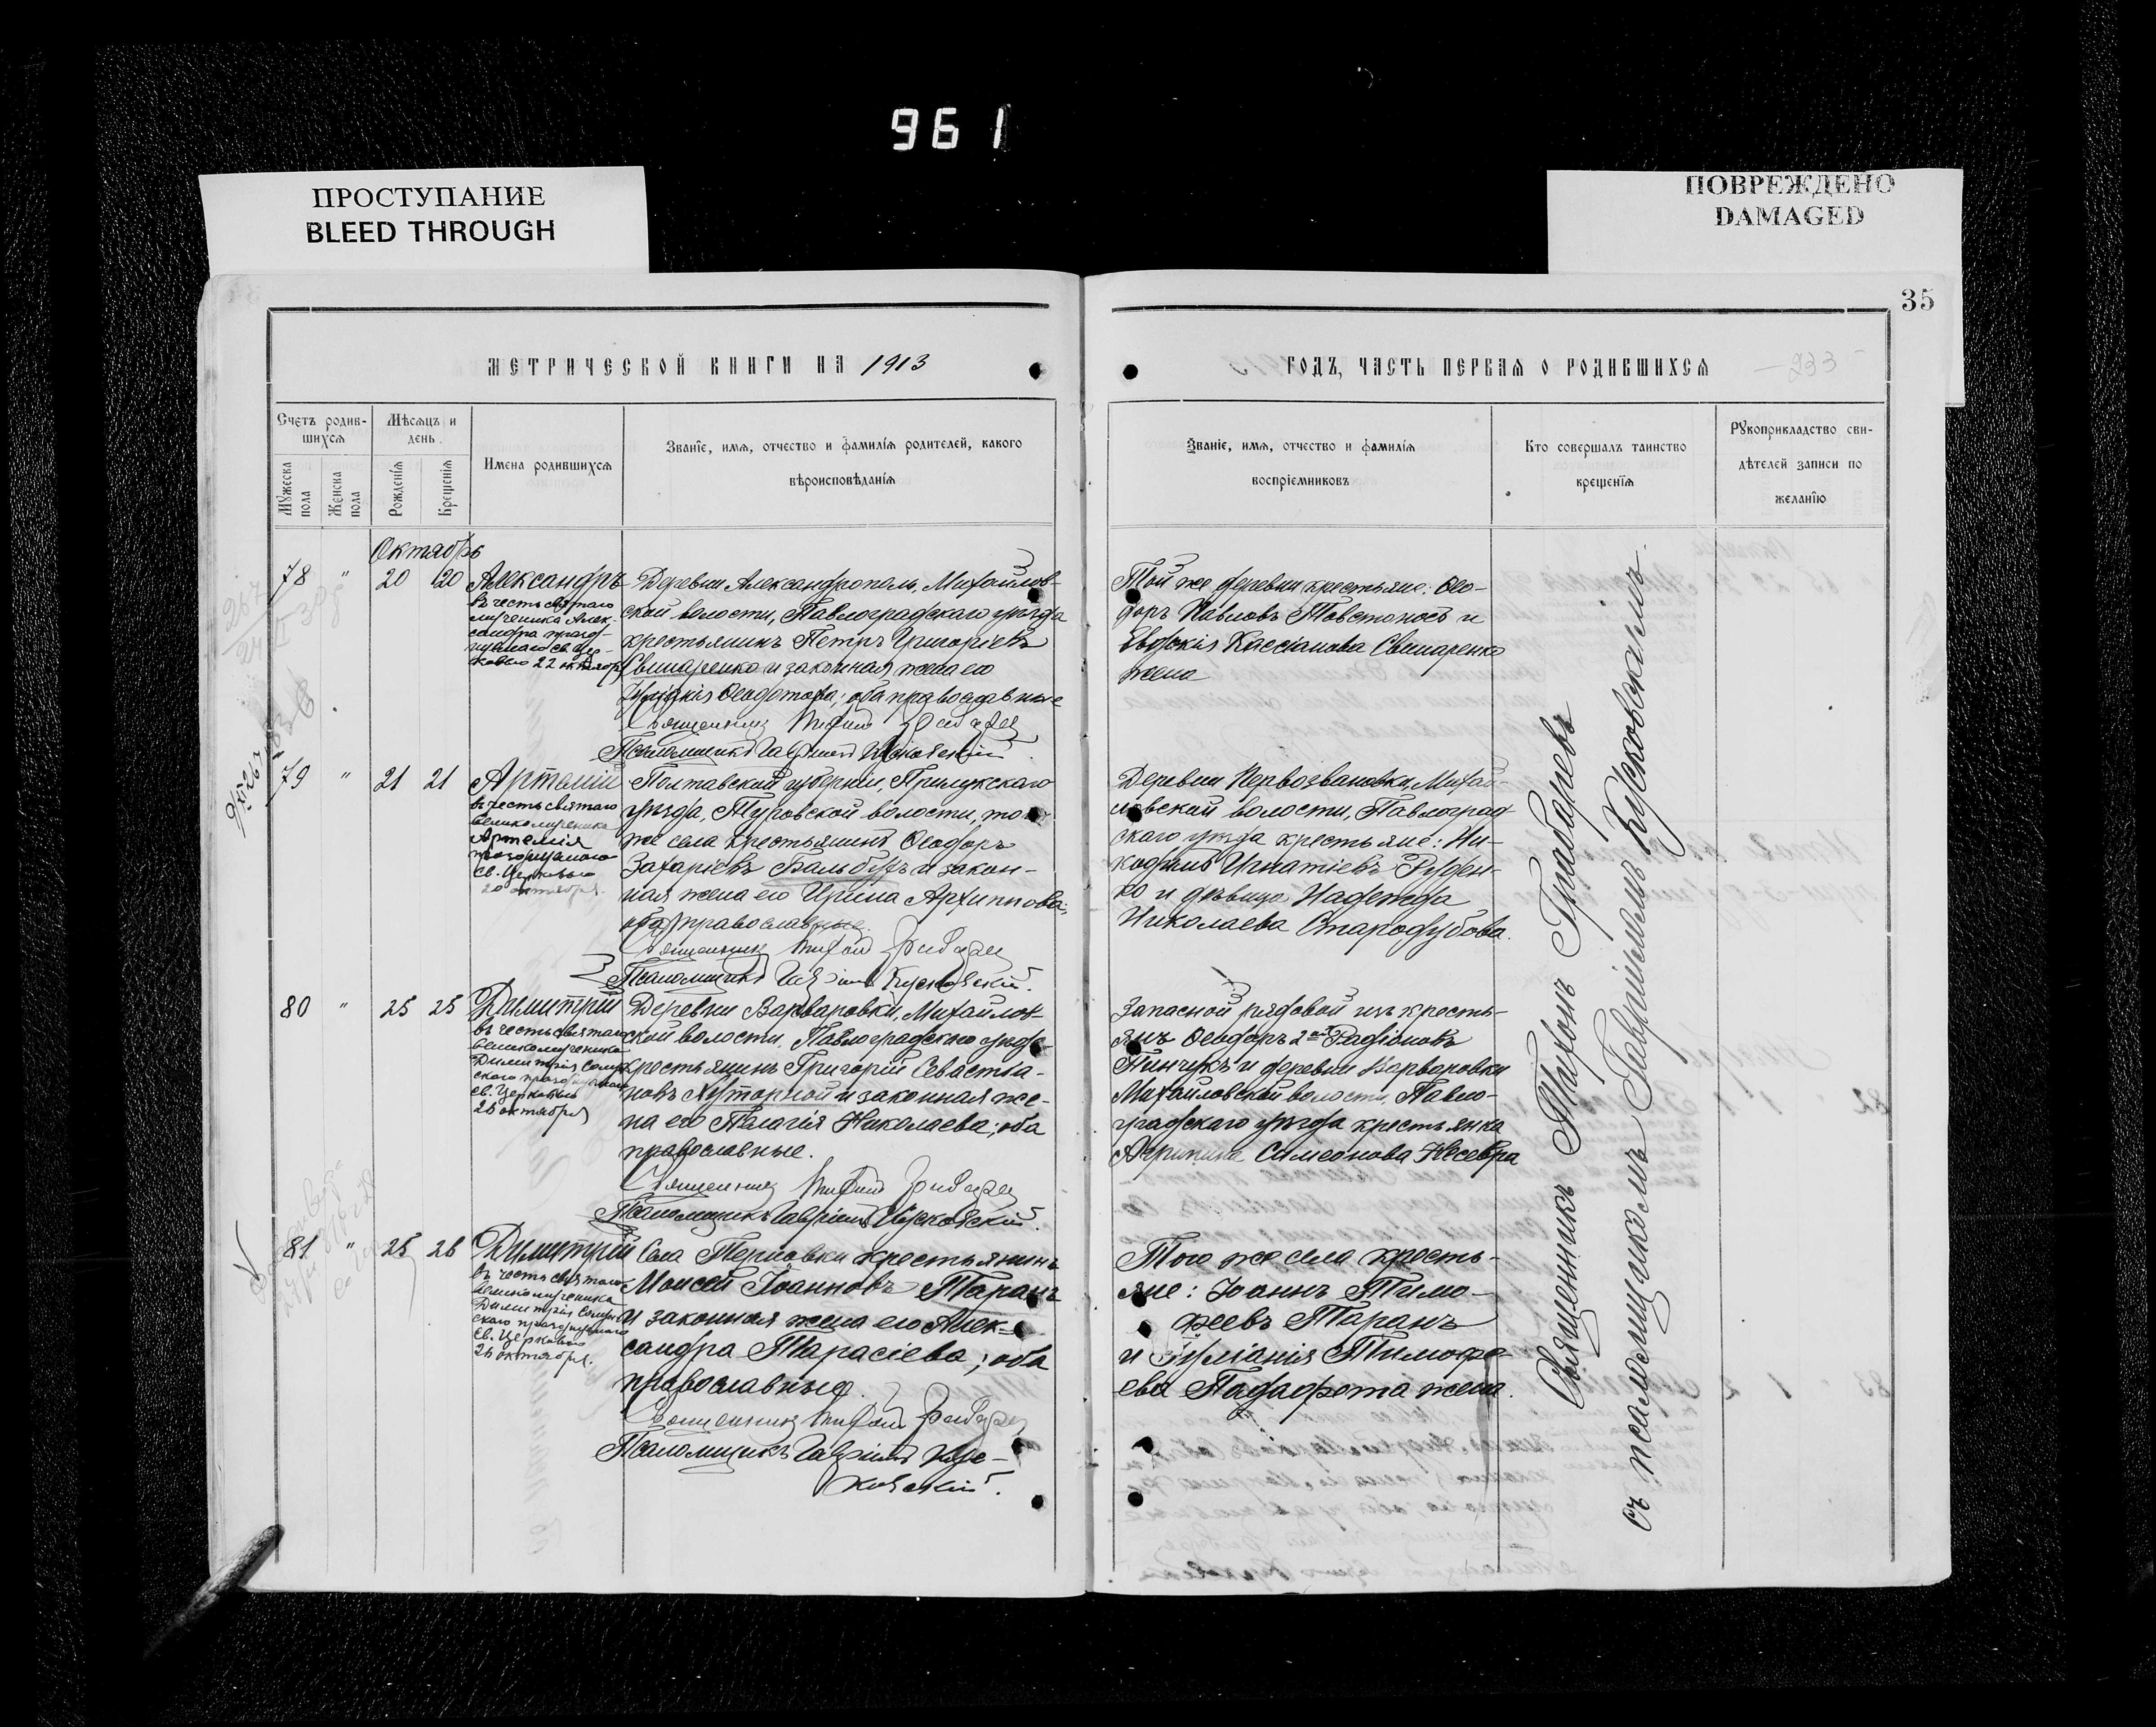 961
ПРОСТУПАНИЕ
BLEED THROUGH
ПОВРЕЖДЕНО
DAMAGED
35
МЕТРИЧЕСКОЙ КНИГИ НА 1913
ГОДЪ, ЧАСТЬ ПЕРВАЯ О РОДИВШИХСЯ
233
Счетъ родив-
шихся
Мужеска пола
Женска пола
Мѣсяцъ и
день.
Рожденія
Крещенія
Имена родившихся
Званіе, имя, отчество и фамилія родителей, какого
вѣроисповѣданія
Званіе, имя, отчество и фамилія
воспріемниковъ
Кто совершалъ таинство
крещенія
Рукоприкладство сви-
дѣтелей записи по
желанію
Октябрь
78 " 20 20
Александръ
въ честь святаго
мученика Алек-
сандра празд-
нуемаго св. Цер-
ковью 22 октября
Деревни Александрополь, Михайлов-
ской волости, Павлоградскаго уѣзда
крестьянинъ Петръ Григоріевъ
Свинаренко и законная жена его
Ѳеодотова; оба православные
Священникъ Тихонъ Грабаревъ
Псаломщикъ Гавріилъ Кусковскій.
Той же деревни крестьяне: Ѳео-
доръ Павловъ Товстоносъ и
Евдокія Кассіанова Свинаренко
жена
79 " 21 21
Артемій
въ честь святаго
великомученика
Артемія
празднуемаго
св. Церковью
20 октября.
Полтавской губерніи, Прилукскаго
уѣзда, волости, того
же села крестьянинъ Ѳеодоръ
Захаріевъ Бальбузъ и закон-
ная жена его Ирина Архиппова;
оба православные.
Священникъ Тихонъ Грабаревъ
Псаломщикъ Гавріилъ Кусковскій.
Деревни Первозвановки, Михай-
ловской волости, Павлоград-
скаго уѣзда крестьяне: Ни-
кодимъ Игнатіевъ Руден-
ко и дѣвица Надежда
Николаева Стародубова.
80 " 25 25
Димитрій
въ честь святаго
великомученика
Димитрія Солун-
скаго празднуемаго
св. Церковью
26 октября
Деревни Варваровки, Михайлов-
ской волости, Павлоградскаго уѣзда
крестьянинъ Григорій Севастіа-
новъ Хуторной и законная же-
на его Пелагія Николаева; оба
православные.
Священникъ Тихонъ Грабаревъ
Псаломщикъ Гавріилъ Кусковскій.
Запасной рядовой изъ кресть-
янъ Ѳеодоръ 2й Радіоновъ
Пинчукъ и деревни Варваровки
Михайловской волости, Павло-
градскаго уѣзда крестьянка
Агрипина Симеонова
81 " 25 26
Димитрій
въ честь святаго
великомученика
Димитрія Солун-
скаго празднуемаго
св. Церковью
26 октября.
Села Терновки крестьянинъ
Моисей Іоанновъ Таранъ
и законная жена его Алек-
сандра Тарасіева; оба
православные.
Священникъ Тихонъ Грабаревъ
Псаломщикъ Гавріилъ Кус-
ковскій.
Того же села кресть-
яне: Іоаннъ Тимо-
феевъ Таранъ
и Іуліанія Тимофе-
ева жена.
Священникъ Тихонъ Грабаревъ
съ псаломщикомъ Гавріиломъ Кусковскимъ.